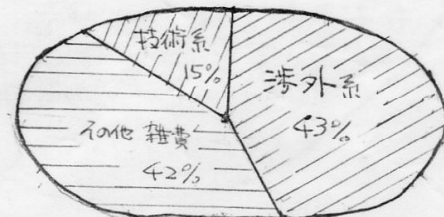 技術系
15%
渉外系
43%
その他 雑費
42%